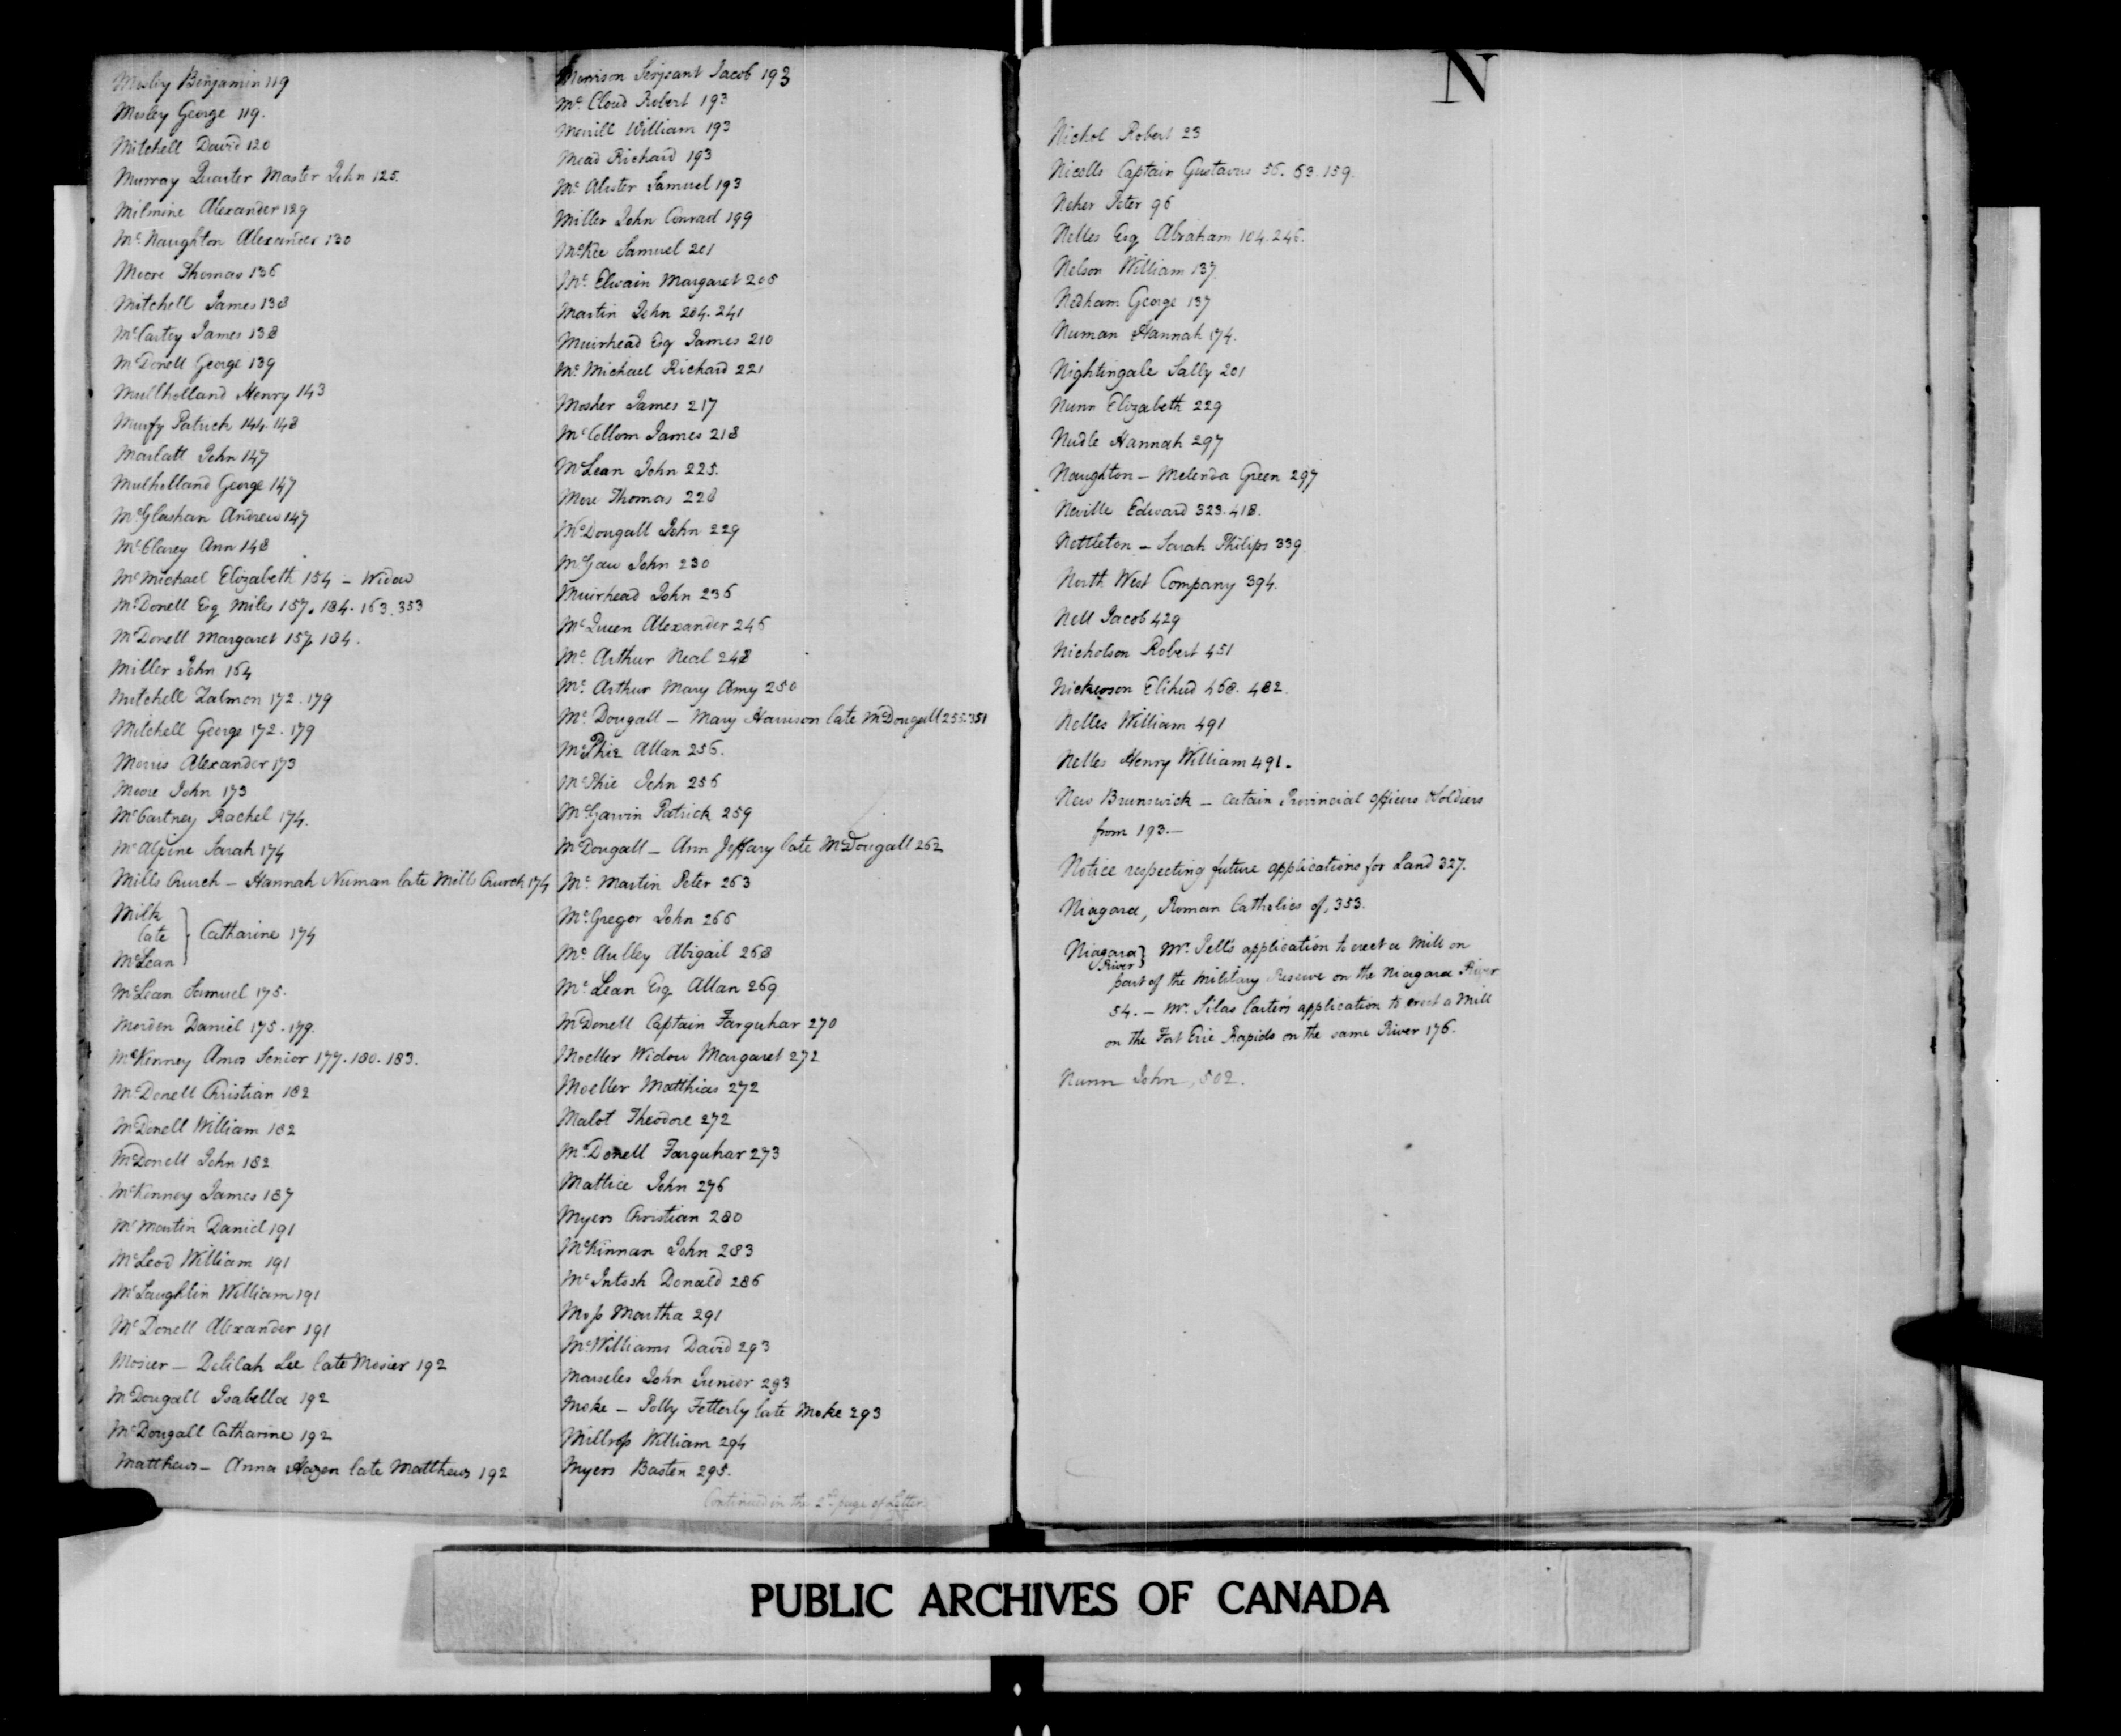 Mosley Benjamin 119
Mosley George 119.
Mitchell David 120
Murray Quarter Master John 125.
Milmine Alexander 129
Mc Naughton Alexander 130
Moore Thomas 136
Mitchell James 138
McCartey James 138
McDonell George 139
Mullholland Henry 143
Murfy Patrick 144. 148
Marlatt John 147
Mulholland George 147
McGlashan Andrew 147
McClarey Ann 148
McMichael Elizabeth 154 - Widow
McDonell Esq Miles 157. 184. 163. 353
McDonell Margaret 157. 184.
Miller John 164
Mitchell Zalmon 172. 179
Mitchell George 172. 179
Morris Alexander 173
Moore John 173
McCartney Rachel 174.
McAlpine Sarah 174
Mills Church - Hannah Numan late Mills Church 174
Milk
late } Catharine 174
McLean
McLean Samuel 175.
Morden Daniel 175. 179.
McKenney Amos Senior 177. 180. 183.
McDonell Christian 182
McDonell William 182
McDonell John 182
McKenney James 187
McMartin Daniel 191
McLeod William 191
McLaughlin William 191
McDonell Alexander 191
Mosier - Delilah Lee late Mosier 192
McDougall Isabella 192
McDougall Catharine 192
Matthews - Anna Hazen late Matthews 192
Morrison Serjeant Jacob 193
Mc Cloud Robert 193
Merrill William 193
Mead Richard 193
Mc Alister Samuel 193
Miller John Conrad 199
McKee Samuel 201
Mc Elwain Margaret 205
Martin John 204. 241
Muirhead Esq James 210
Mc Michael Richard 221
Mosher James 217
McCollom James 218
McLean John 225.
More Thomas 228
McDougall John 229
McGaw John 230
Muirhead John 236
McQueen Alexander 246
Mc Arthur Neal 248
Mc Arthur Mary Amy 250
Mc Dougall - Mary Harrison late McDougall 255. 351
McPhie Allan 256.
McPhie John 256
McGarvin Patrick 259
McDougall - Ann Jeffary late McDougall 262
Mc Martin Peter 263
McGregor John 266
Mc Aulley Abigail 268
Mc Lean Esq Allan 269
McDonell Captain Farquhar 270
Moeller Widow Margaret 272
Moeller Matthias 272
Malot Theodore 272
McDonell Farquhar 273
Mattice John 276
Myers Christian 280
McKinnan John 283
McIntosh Donald 286
Moss Martha 291
McWilliams David 293
Marseles John Junior 293
Moke - Polly Fetterly late Moke 293
Millross William 294
Myers Basten 295.
Continued in the 2d page of Letter
N
Nichol Robert 23
Nicolls Captain Gustavus 56. 63. 159.
Neher Peter 96
Nelles Esq Abraham 104. 246.
Nelson William 137.
Nedham George 137
Numan Hannah 174.
Nightingale Sally 201
Nunn Elizabeth 229
Nudle Hannah 297
Naughton - Melenda Green 297
Neville Edward 323. 418.
Nettleton - Sarah Philips 339
North West Company 394.
Nell Jacob 429
Nicholson Robert 451
Nickerson Elihud 468. 482.
Nelles William 491
Nelles Henry William 491.
New Brunswick - certain Provincial officers & soldiers
from 193.-
Notice respecting future applications for Land 327.
Niagara, Roman Catholics of, 353.
Niagara River } Mr. Pell's application to erect a Mill on
part of the Military Reserve on the Niagara River
54. - Mr. Silas Carter's application to erect a Mill
on the Fort Erie Rapids on the same River 176.
Nunn John, 502.
PUBLIC ARCHIVES OF CANADA